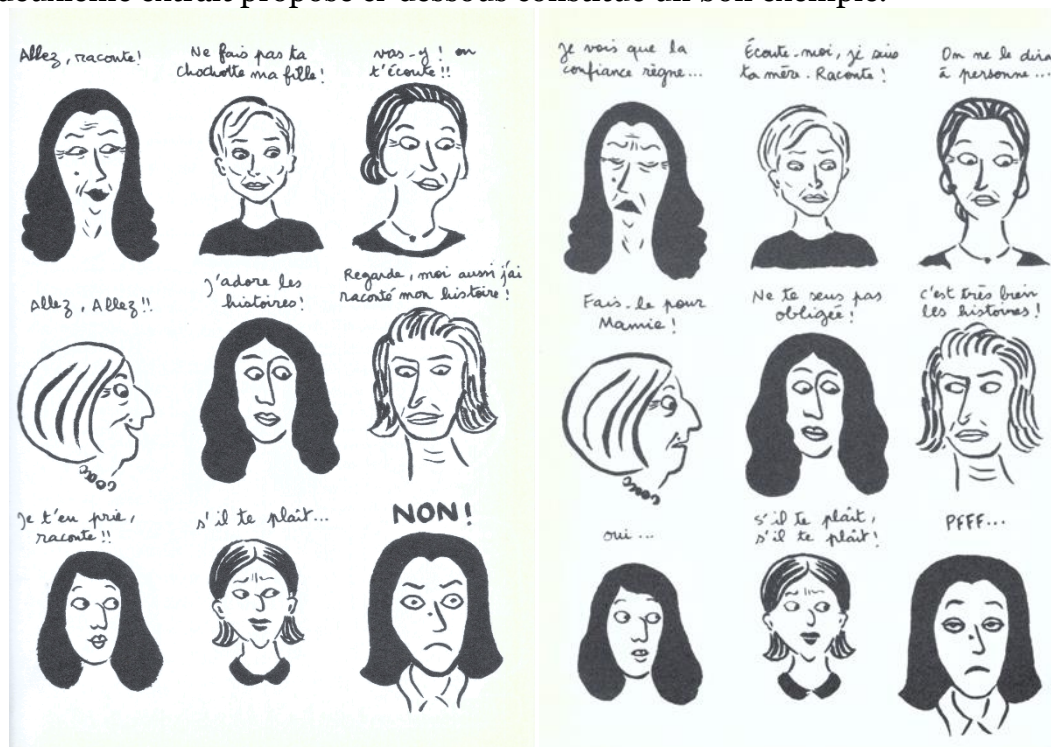 deuxième extrait proposé ci-dessous constitue un bon exemple.
Allez, raconte!
Ne fais pas ta
chochotte ma fille!
vas-y! on
t'écoute!!
Allez, Allez!!
J'adore les
histoires!
Regarde, moi aussi j'ai
raconté mon histoire!
Je t'en prie,
raconte!!
s'il te plaît...
NON!
Je vois que la
confiance règne...
Écoute-moi, je suis
ta mère. Raconte!
On ne le dira
à personne...
Fais-le pour
Mamie!
Ne te sens pas
obligée!
c'est très bien
les histoires!
oui...
s'il te plaît,
s'il te plaît!
PFFF...